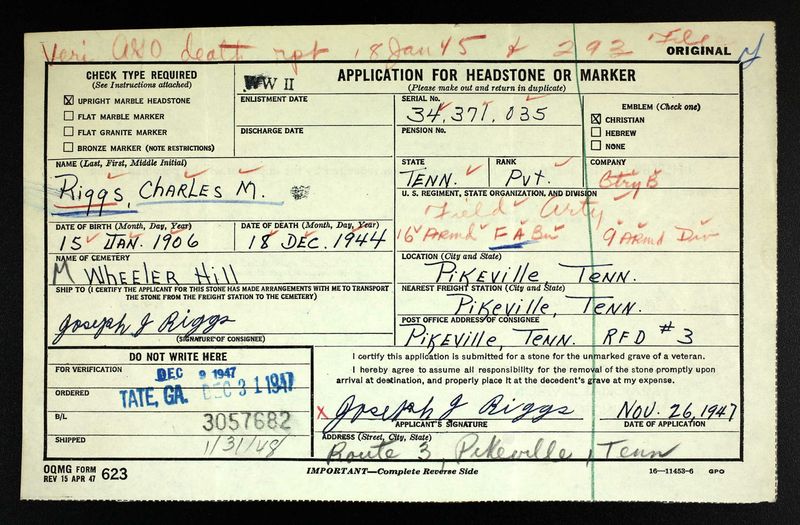 Veri AGO death rpt 18 Jan 45 & 293 File
ORIGINAL
CHECK TYPE REQUIRED
(See Instructions attached)
☒ UPRIGHT MARBLE HEADSTONE
☐ FLAT MARBLE MARKER
☐ FLAT GRANITE MARKER
☐ BRONZE MARKER (NOTE RESTRICTIONS)
WW II
ENLISTMENT DATE
DISCHARGE DATE
APPLICATION FOR HEADSTONE OR MARKER
(Please make out and return in duplicate)
SERIAL No.
34,371,035
PENSION No.
EMBLEM (Check one)
☒ CHRISTIAN
☐ HEBREW
☐ NONE
NAME (Last, First, Middle Initial)
Riggs, Charles M.
STATE
TENN.
RANK
Pvt.
COMPANY
Btry B
U. S. REGIMENT, STATE ORGANIZATION, AND DIVISION
Field Arty
16 Armd F A Bn 9 Armd Div
DATE OF BIRTH (Month, Day, Year)
15 JAN. 1906
DATE OF DEATH (Month, Day, Year)
18 DEC. 1944
NAME OF CEMETERY
M Wheeler Hill
LOCATION (City and State)
Pikeville, Tenn.
SHIP TO (I CERTIFY THE APPLICANT FOR THIS STONE HAS MADE ARRANGEMENTS WITH ME TO TRANSPORT
THE STONE FROM THE FREIGHT STATION TO THE CEMETERY)
Joseph J Riggs
(SIGNATURE OF CONSIGNEE)
NEAREST FREIGHT STATION (City and State)
Pikeville, Tenn.
POST OFFICE ADDRESS OF CONSIGNEE
Pikeville, Tenn. RFD #3
DO NOT WRITE HERE
FOR VERIFICATION
DEC 9 1947
ORDERED
TATE, GA. DEC 31 1947
B/L
3057682
SHIPPED
1/31/48
I certify this application is submitted for a stone for the unmarked grave of a veteran.
I hereby agree to assume all responsibility for the removal of the stone promptly upon
arrival at destination, and properly place it at the decedent's grave at my expense.
x Joseph J Riggs
APPLICANT'S SIGNATURE
Nov. 26, 1947
DATE OF APPLICATION
ADDRESS (Street, City, State)
Route 3, Pikeville, Tenn
OQMG FORM 623
REV 15 APR 47
IMPORTANT—Complete Reverse Side
16—11453-6 GPO